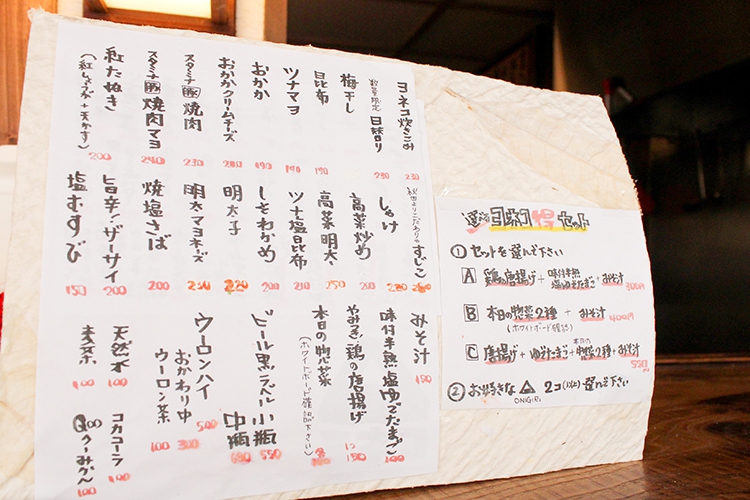 ヨネコ炊きこみ 230
数量限定 日替り 230
梅干し
昆布 190
ツナマヨ 190
おかか 190
おかかクリームチーズ
スタミナ豚焼肉 230
スタミナ豚焼肉マヨ 240
紅たぬき
(紅しょうが+天かす) 200
すじこ
しゃけ 220
高菜炒め 200
高菜明太 250
ツナ塩昆布 210
しそわかめ 200
明太子 220
明太マヨネーズ 250
焼塩さば 200
旨辛!ザーサイ 200
塩むすび 150
みそ汁 150
味付半熟塩ゆでたまご 100
やみぎ鶏の唐揚げ
本日の惣菜
(ホワイトボード確認下さい)
ビール黒ラベル 小瓶 550
中瓶 680
ウーロンハイ 500
おかわり中 300
ウーロン茶 100
天然水 100
麦茶 100
コカコーラ 100
Qooみかん 100
ヨネコ得セット
① セットを選んで下さい
A 鶏の唐揚げ + 味付半熟塩ゆでたまご + みそ汁 300円
B 本日の惣菜2種 + みそ汁 400円
(ホワイトボード確認)
C 唐揚げ + ゆでたまご + 本日の惣菜2種 + みそ汁 550
② お好きな△ 2コ(以上)選んで下さい
ONIGIRI